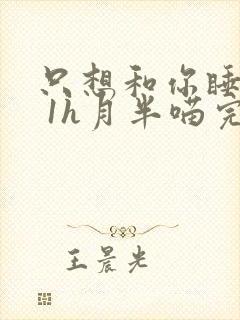 只想和你睡
1h月半喵完
王晨光